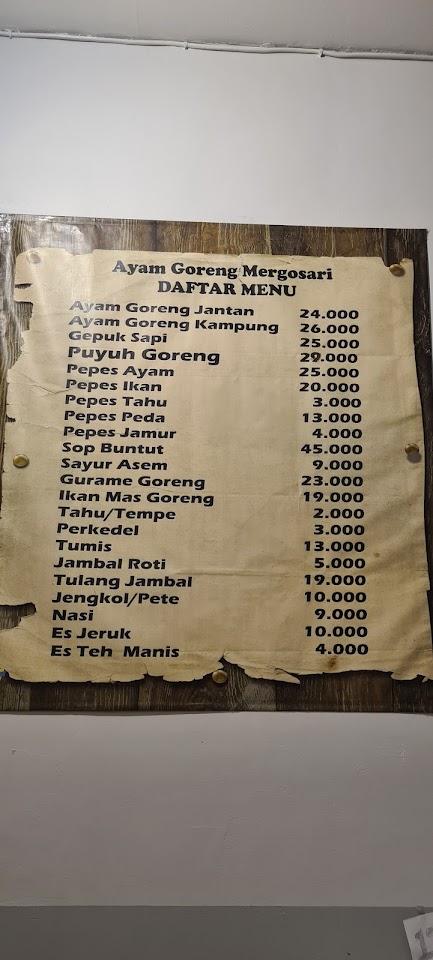 Ayam Goreng Mergosari
DAFTAR MENU
Ayam Goreng Jantan 24.000
Ayam Goreng Kampung 26.000
Gepuk Sapi 25.000
Puyuh Goreng 29.000
Pepes Ayam 25.000
Pepes Ikan 20.000
Pepes Tahu 3.000
Pepes Peda 13.000
Pepes Jamur 4.000
Sop Buntut 45.000
Sayur Asem 9.000
Gurame Goreng 23.000
Ikan Mas Goreng 19.000
Tahu/Tempe 2.000
Perkedel 3.000
Tumis 13.000
Jambal Roti 5.000
Tulang Jambal 19.000
Jengkol/Pete 10.000
Nasi 9.000
Es Jeruk 10.000
Es Teh Manis 4.000